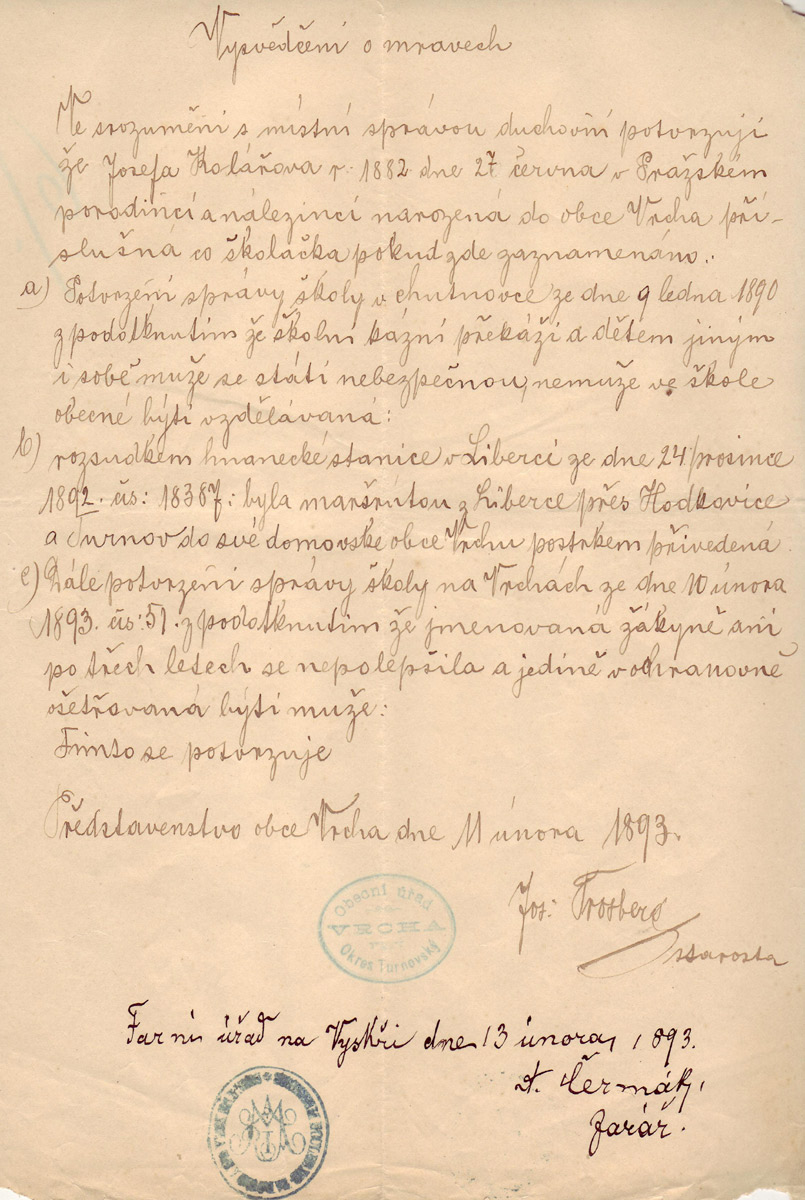 Vysvědčení o mravech
Ve srozumění s místní správou duchovní potvrzují
že Josefa Kolářova r. 1882 dne 27 června v Pražském
porodincí a nálezincí narozená do obce Vrcha pří-
slušná co školačka pokud zde zaznamenáno.:
a) Potvrzení správy školy v chutnovce ze dne 9 ledna 1890
z podotknutim že školní kázní překáží a dětem jiným
i sobě muže se státi nebezpečnou, nemuže ve škole
obecné býti vzdělávaná:
b) rozsudkém hnanecké stanice v Liberci ze dne 24 prosince
1892. čís: 18387: byla maršrutou z Liberce přes Hodkovice
a Turnov do své domovske obce Vrchu postrkem přivedená
c) Dále potvrzení správy školy na Vrchách ze dne 10 února
1893. čís: 51. z podotknutim že jmenovaná žákyně ani
po třech letech se nepolepšila a jedině v ochranovně
ošetřovaná býti muže:
Timto se potvrzuje
Představenstvo obce Vrcha dne 11 února 1893.
Jos:
starosta
Obecní úřad
VRCHA
Okres Turnovský
Farní úřad na Vyskři dne 13 února 1893.
A. Čermák,
farář.